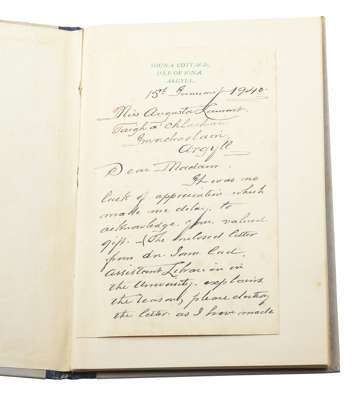 IONA COTTAGE,
ISLE OF IONA,
ARGYLL.
15th January 1940
Miss Augusta Lamont,
Tuigh a
Argyll
Dear Madam.
It was no
lack of appreciation which
made me delay, to
acknowledge your valued
gift. The enclosed letter
from dr. Iam
Assistant Librarian in
the University, explains
the reason, please destroy
the letter. as I have made